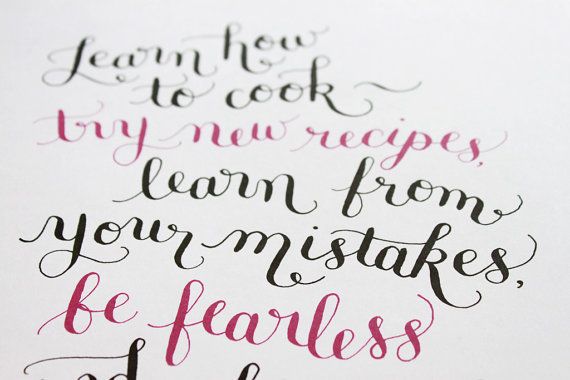 Learn how
to cook ~
try new recipes,
learn from
your mistakes,
be fearless